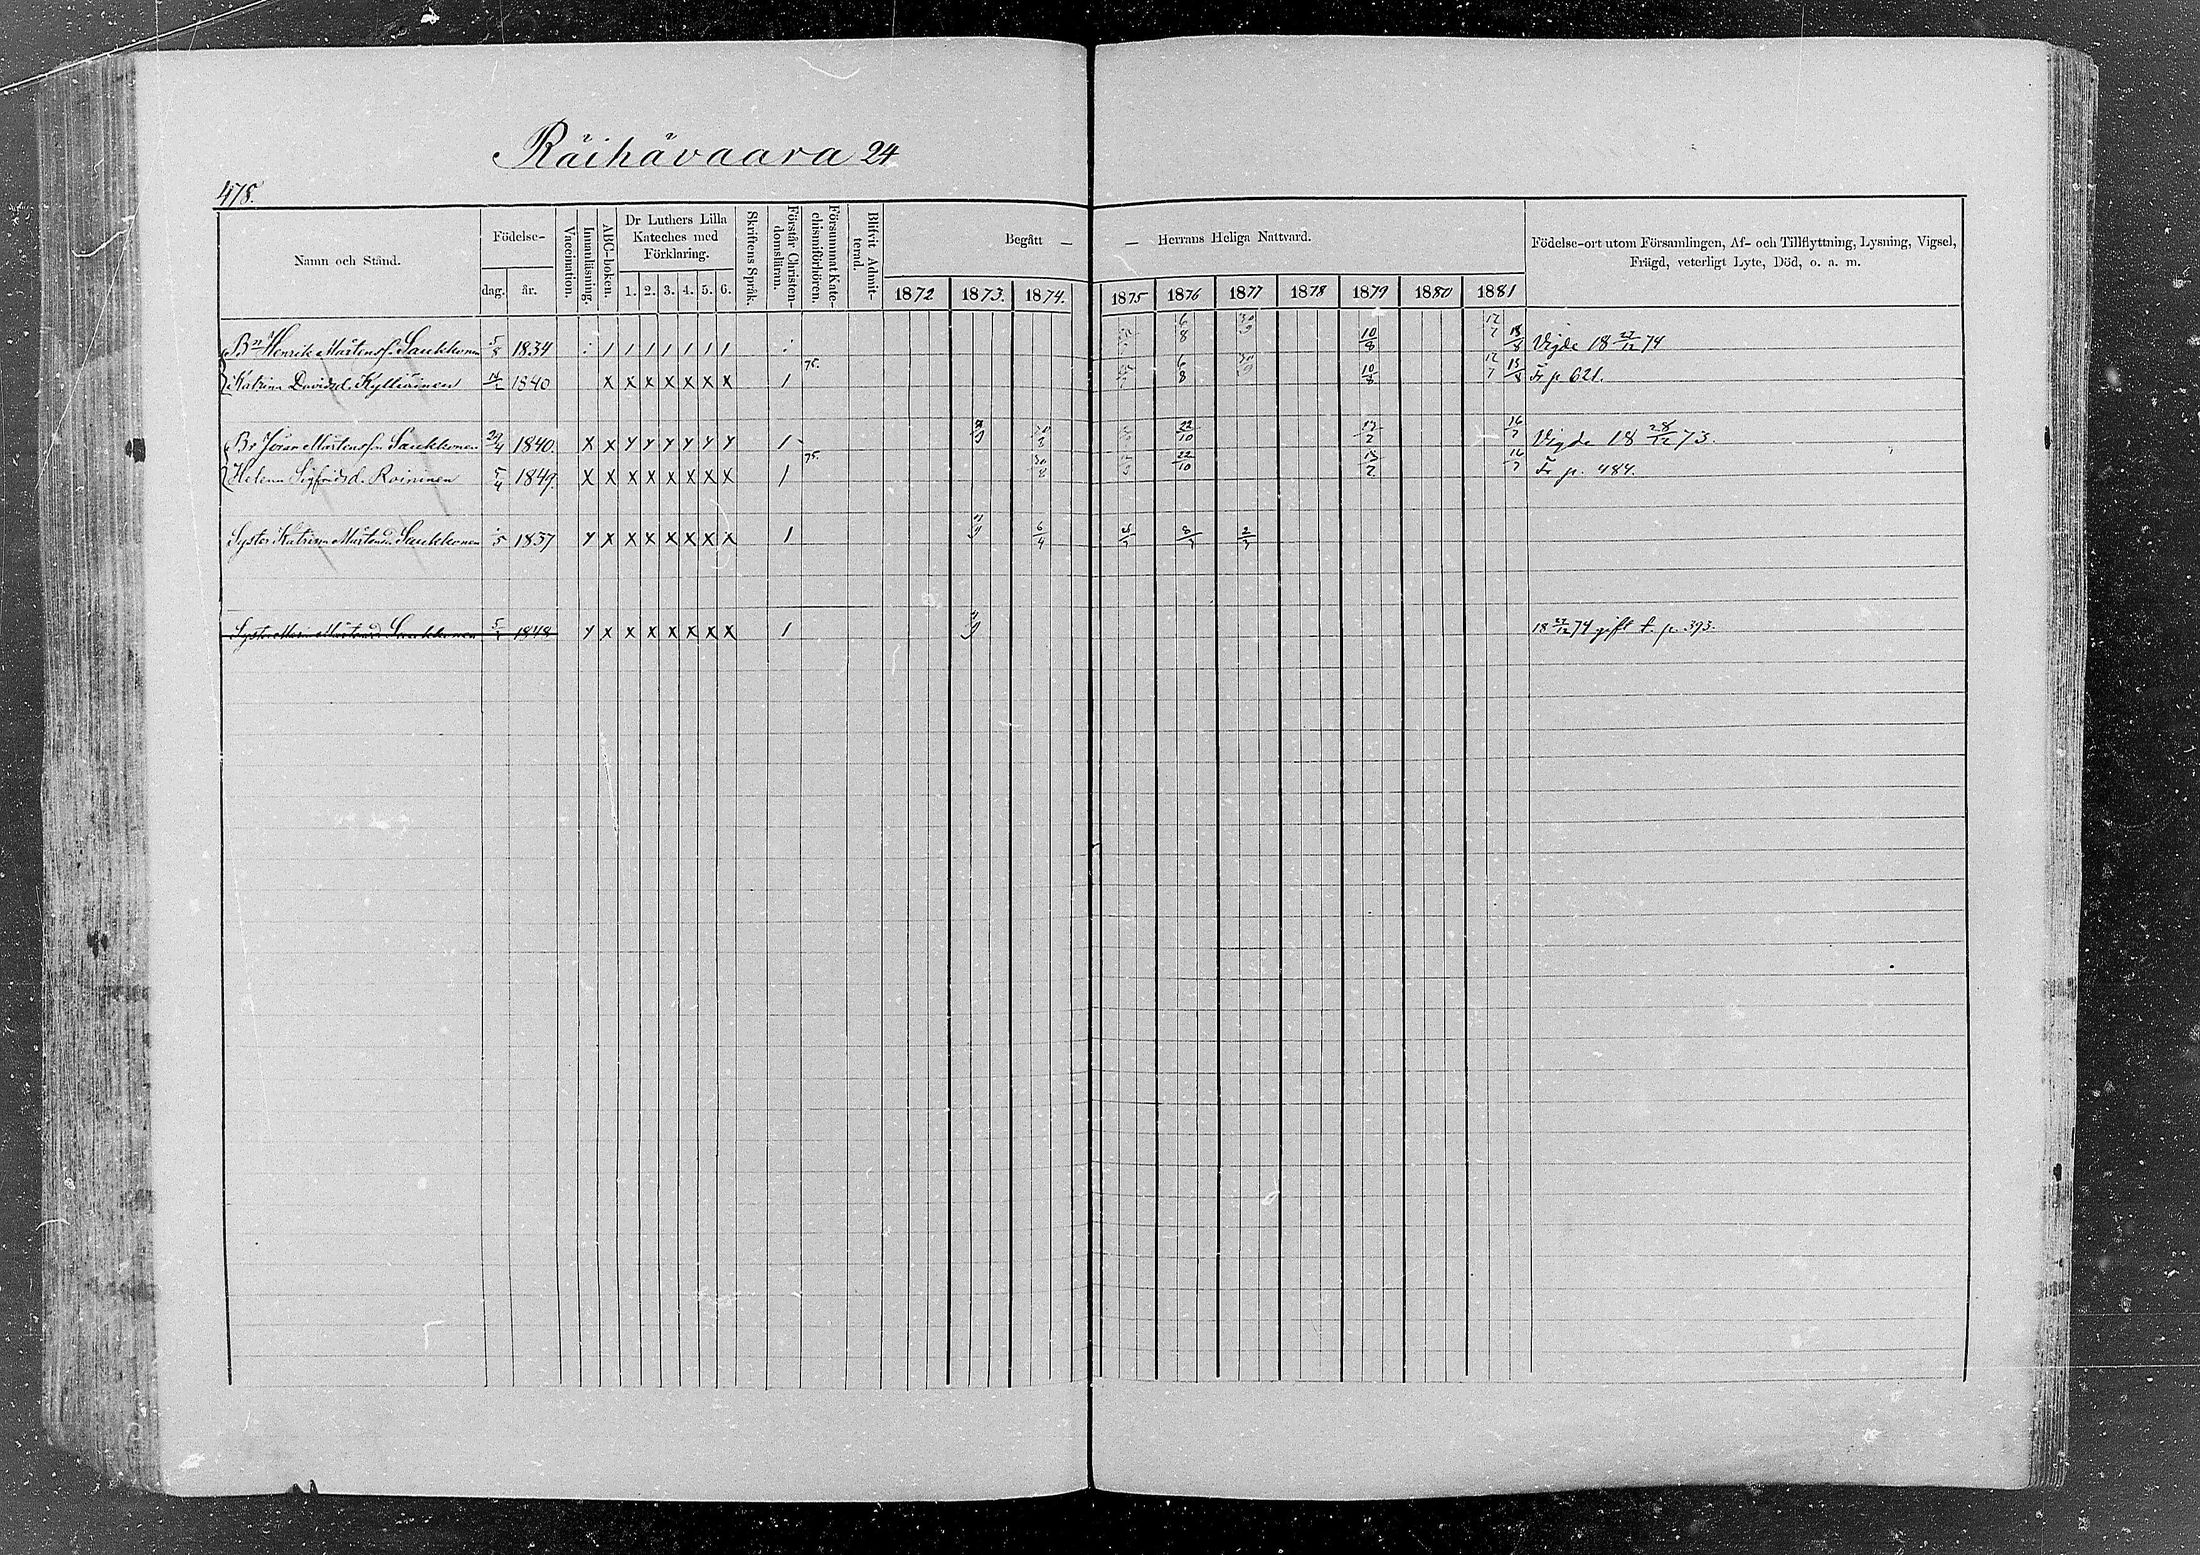 Räihävaara 24
478.
Namn och Stånd.
Födelse-
dag. år.
Vaccination.
Innanläsning.
ABC-boken.
Dr Luthers Lilla
Kateches med
Förklaring.
1. 2. 3. 4. 5. 6.
Skriftens Språk.
Förstår Christen-
domsläran.
Försummat Kate-
chismiförhören.
Blifvit Admit-
terad.
Begått — — Herrans Heliga Nattvard.
1872 1873. 1874. 1875 1876 1877 1878 1879 1880 1881
Födelse-ort utom Församlingen, Af- och Tillflyttning, Lysning, Vigsel,
Frägd, veterligt Lyte, Död, o. a. m.
Bn Henrik Mårtensf. Saukkonen 5/8 1834 6/8 10/8 Vigde 18 27/12 74
Katrina Davidsd. Kylliäinen 1840 x x x x x x x 1 75. 6/8 10/8 Fr p 621.
Br Jöran Mårtensfn Saukkonen 29/4 1840. 1 22/10 Vigde 18 28/12 73.
Helena Sigfridsd. Roininen 5/4 1849. x x x x x x x x 1 75. 22/10 Fr p. 484.
Syster Katrina Mårtensd. Saukkonen 1837 x x x x x x x 1 6/4
Syster Maria Mårtensd Saukkonen 1848 x x x x x x x 1 18 27/12 74 gift t. p. 393.